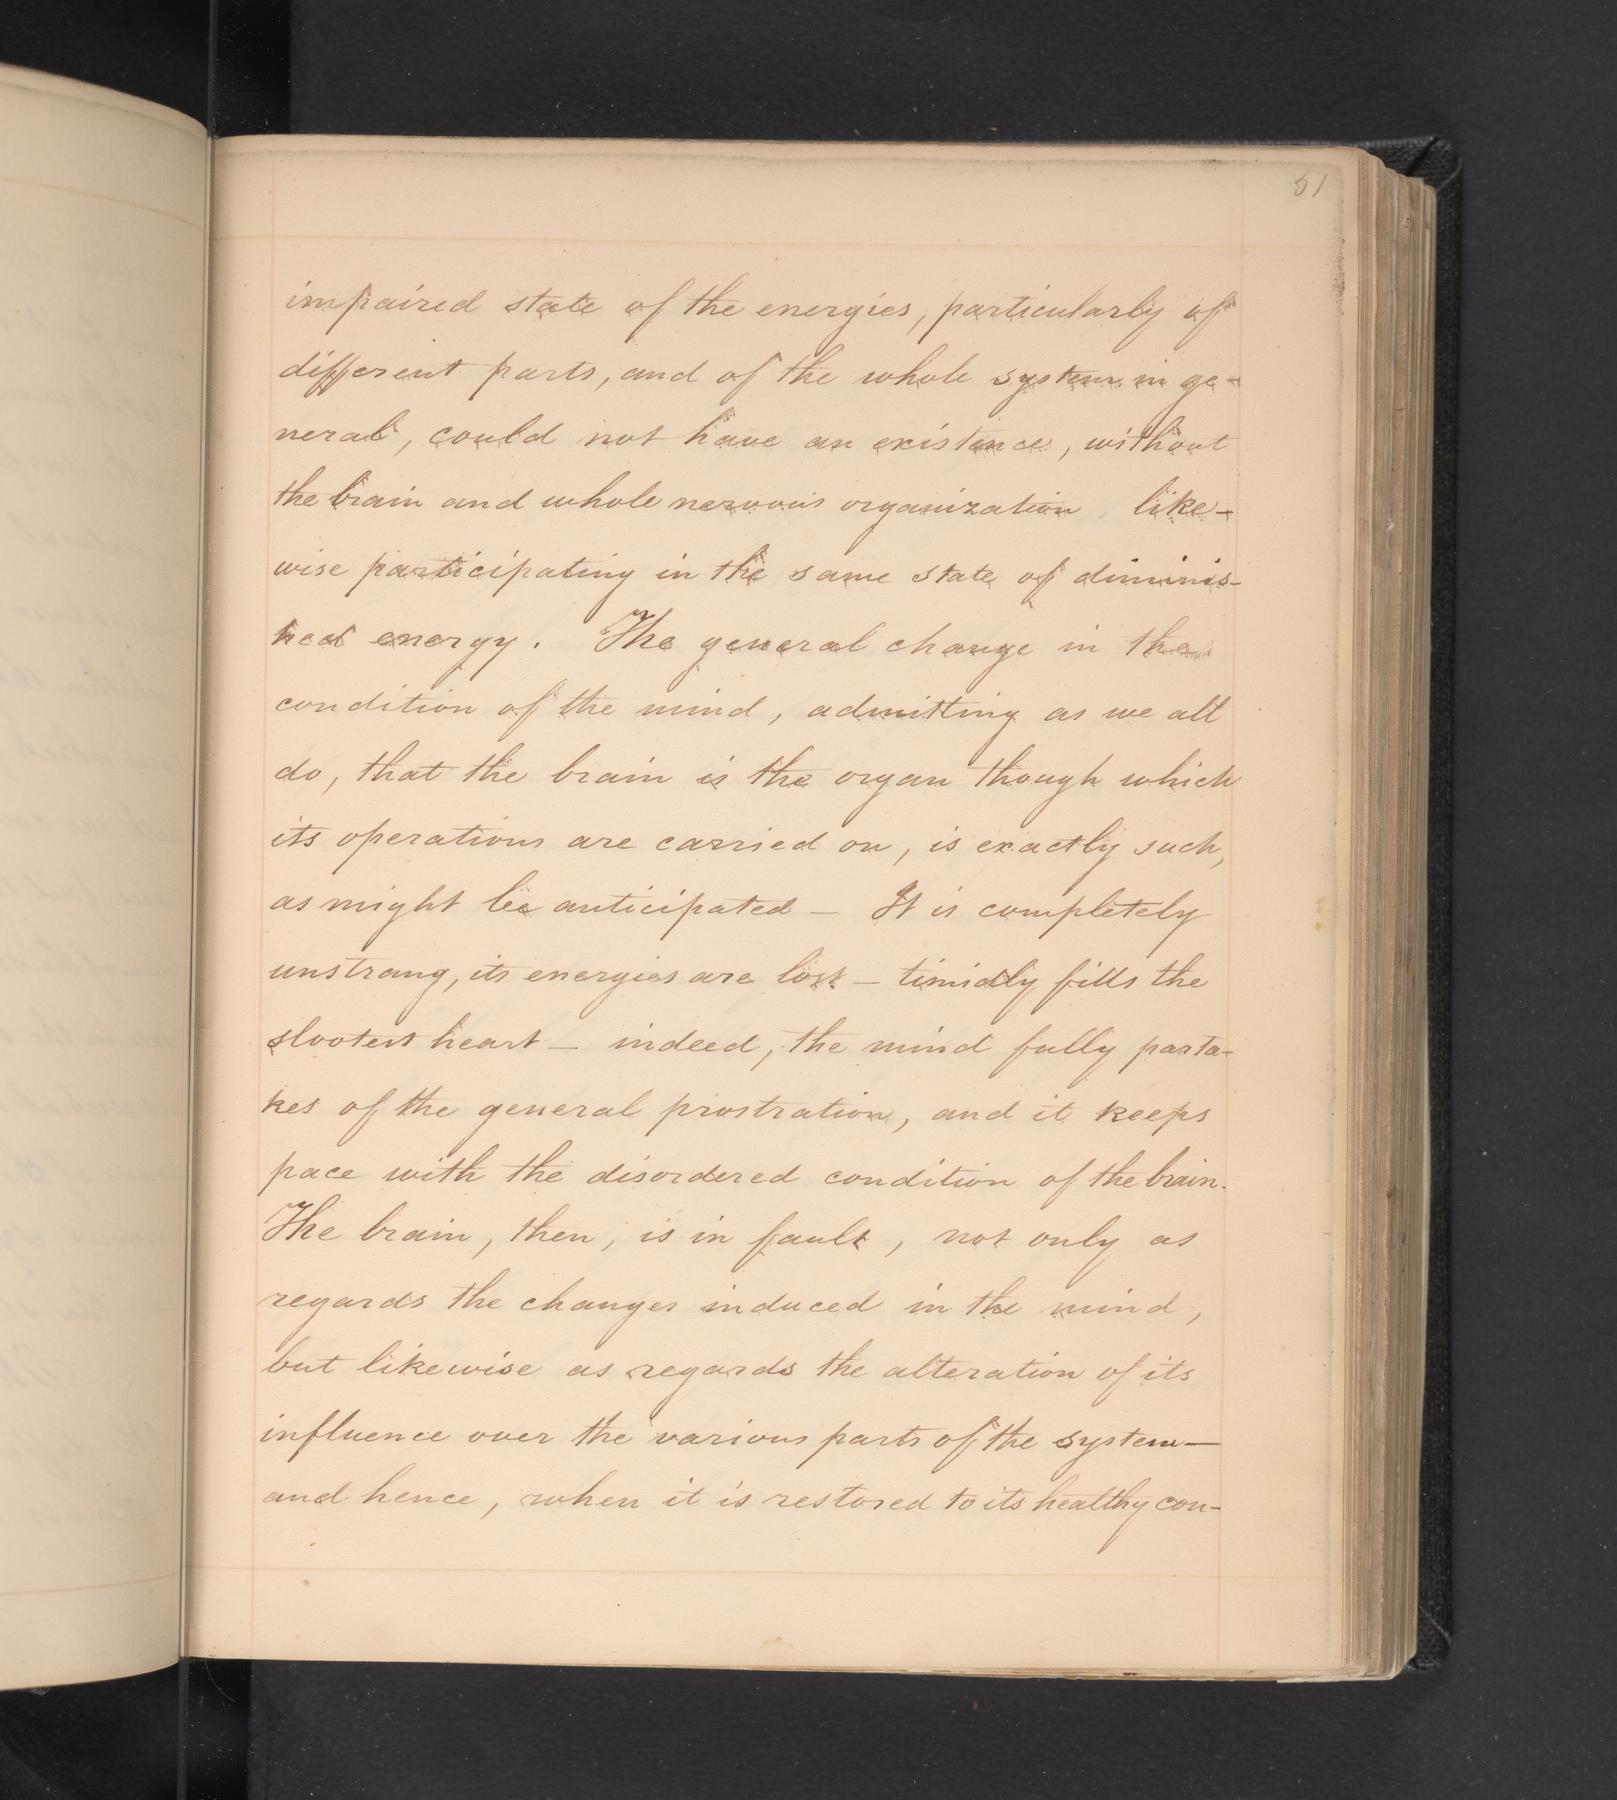 51
impaired state of the energies, particularly of
different parts, and of the whole system in ge-
neral, could not have an existence, without
the brain and whole nervous organization like-
wise participating in the same state of diminis-
hed energy. The general change in the
condition of the mind, admitting as we all
do, that the brain is the organ though which
its operations are carried on, is exactly such,
as might be anticipated — It is completely
unstrang, its energies are lost — timidly fills the
slootest heart — indeed, the mind fully parta-
kes of the general prostration, and it keeps
pace with the disordered condition of the brain.
The brain, then, is in fault, not only as
regards the changes induced in the mind,
but likewise as regards the alteration of its
influence over the various parts of the system—
and hence, when it is restored to its healthy con-